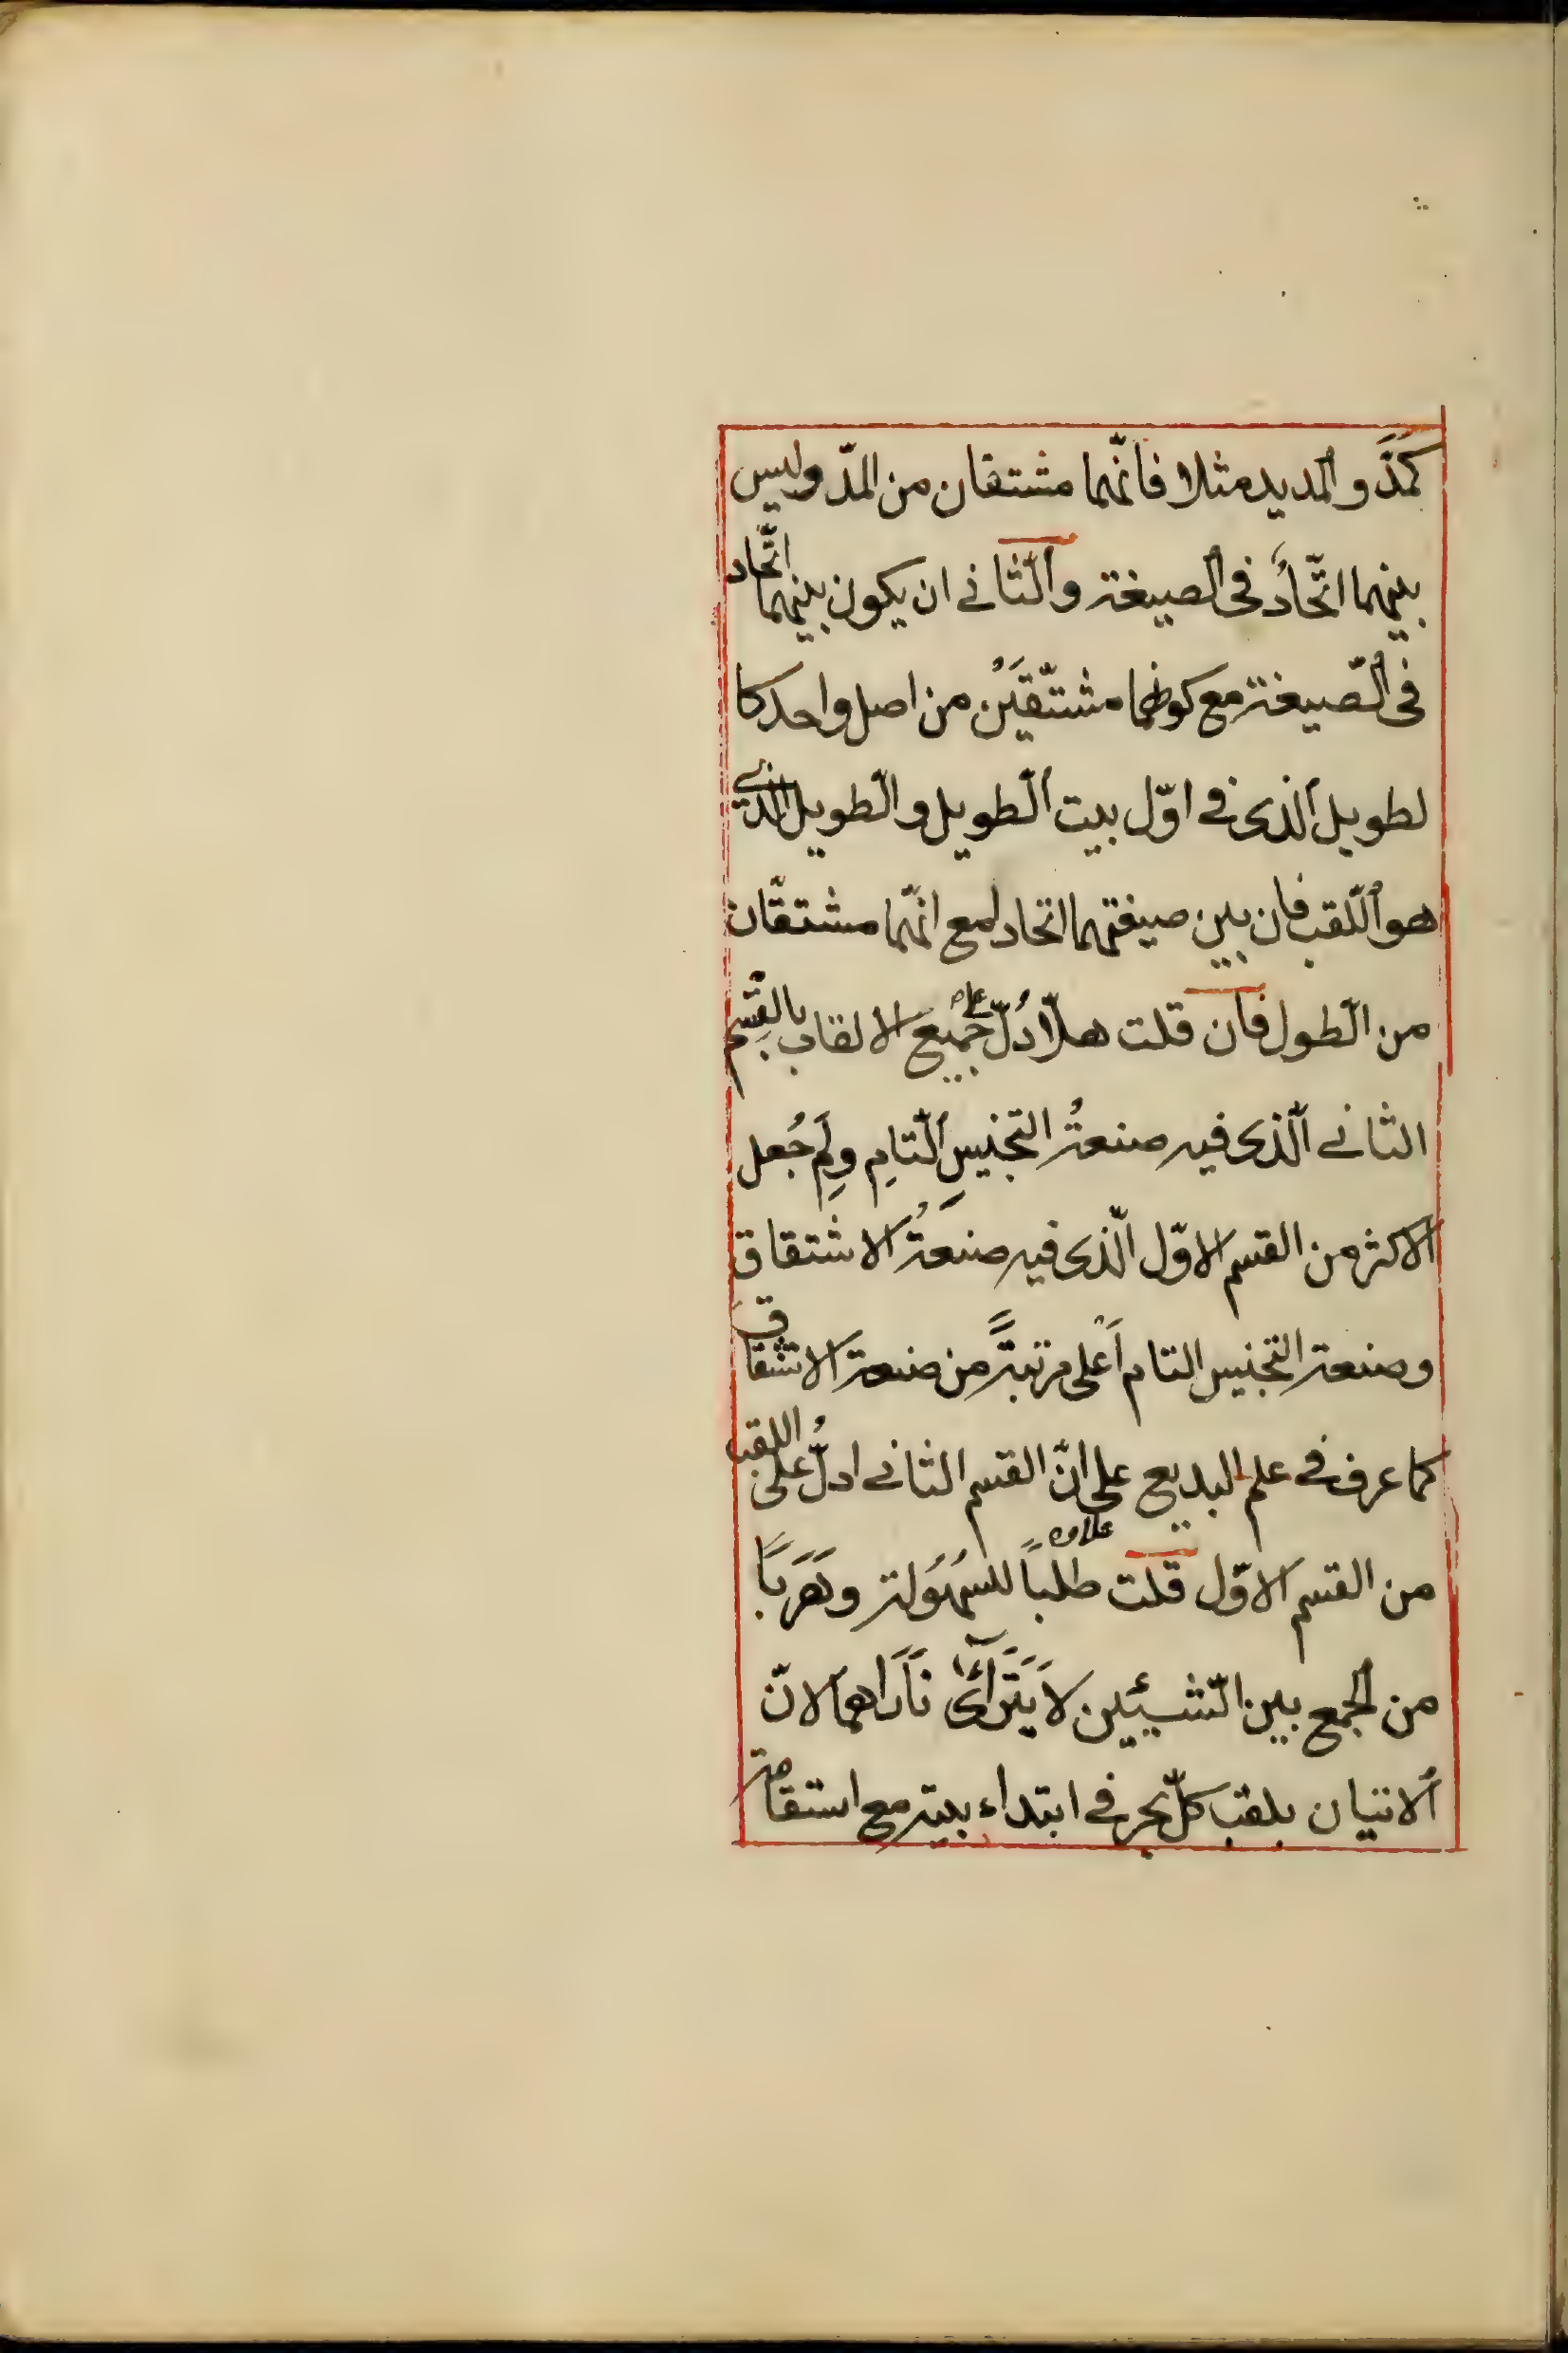 كَمَدَّ والمديد مثلا فانّهما مشتقان من المدّ وليس
بينهما اتّحادٌ فى الصيغة والثّانے ان يكون بينهما اتّحاد
فى الصّيغة مع كونهما مشتّقَيْن من اصل واحد كا
لطويل الذى فے اوّل بيت الّطويل والّطويل الذے
هو الّلقب فان بين صيغتهما اتحاد لمع انّهما مشتقّان
من الّطول فان قلت هلّا دُلّ على جميع الالقاب بالقِسم
الثانے الّذى فيه صنعةُ التجنيسِ الّتامِ ولِمَ جُعل
الاكثر من القسم الاوّل الّذى فيه صنعَةُ الاشتقاق
وصنعة التجنيس التام أَعْلى مرتبةً من صنعة الاتشقاق
كما عرف فے علم البديع على انّ القسم الثانے ادلُّ على اللقب
علاوه
من القسم الاوّل قلت طلباً للسهُولة وهَرَباً
من الجمع بين الّشيئين لَا يَتَرَآئٰ نَارَاهما لانّ
الاتيان بلقب كلّ بحر فے ابتداء بيته مع استقامة